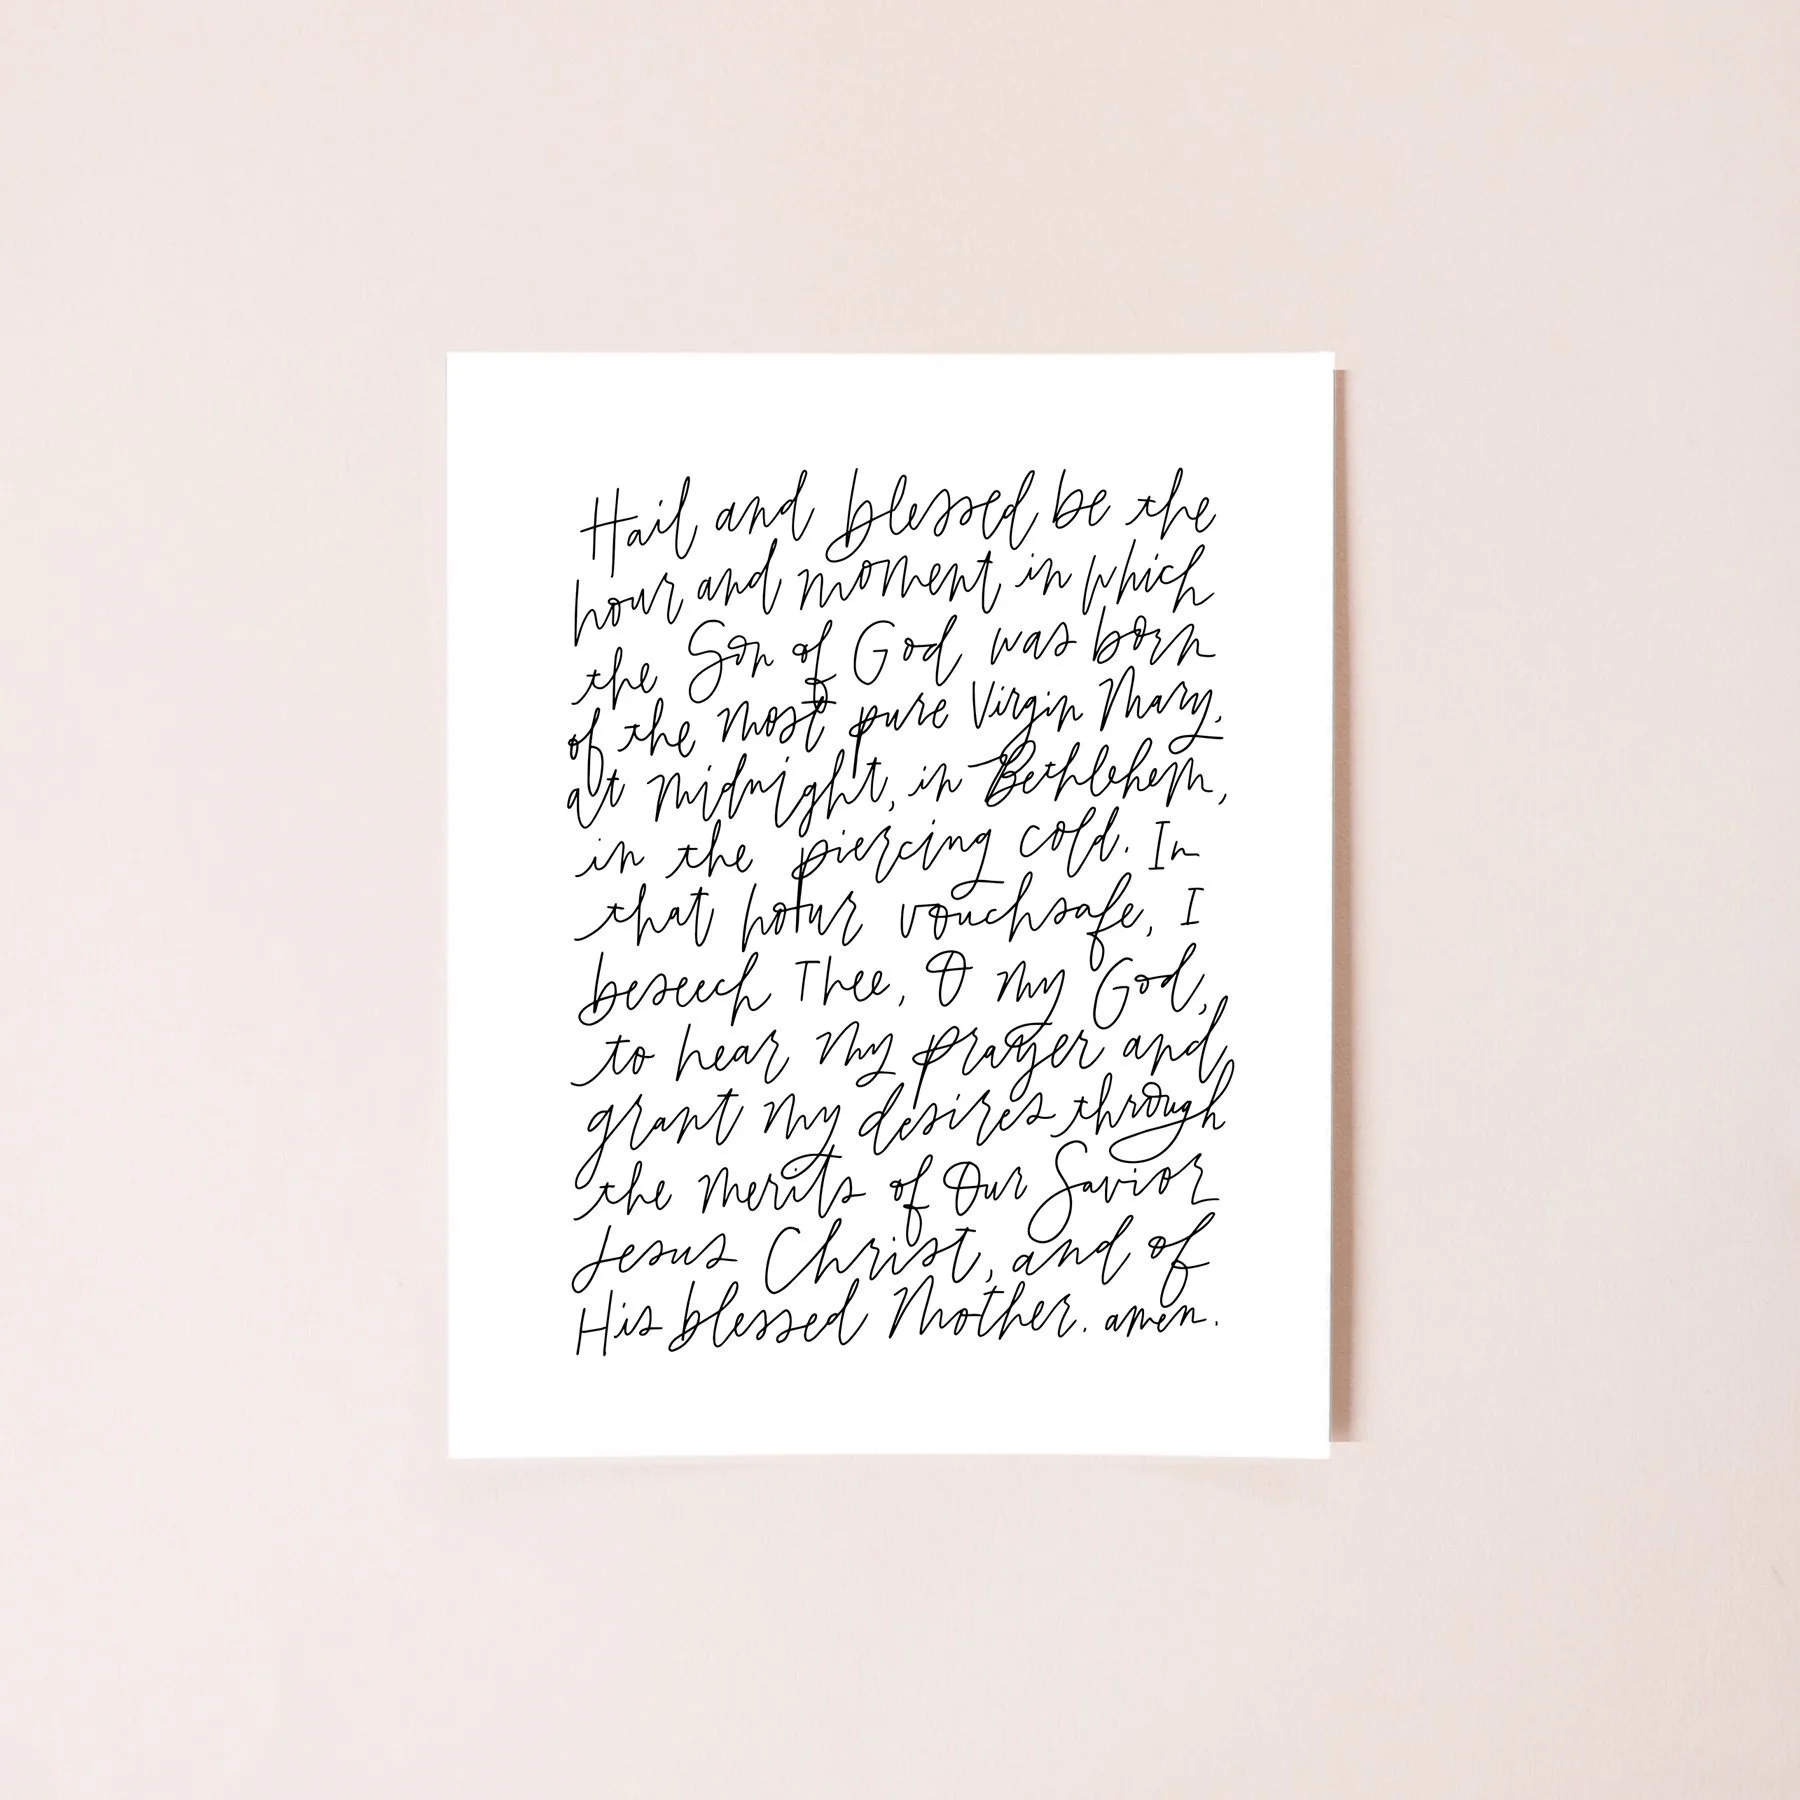 Hail and blessed be the
hour and moment in which
the Son of God was born
of the most pure Virgin Mary,
at midnight, in Bethlehem,
in the piercing cold. In
that hour vouchsafe, I
beseech Thee, O my God,
to hear my prayer and
grant my desires through
the merits of Our Savior
Jesus Christ, and of
His blessed Mother. amen.